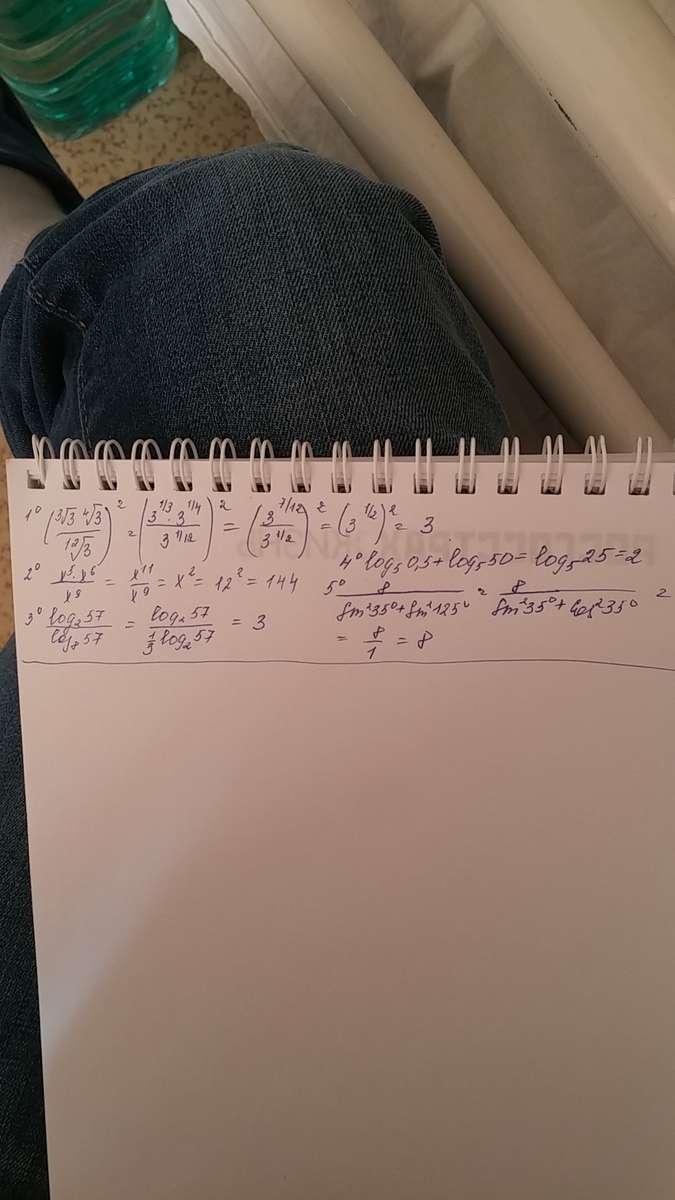 1° (∛3 ∜3 / ¹²√3)² = (3^1/3 · 3^1/4 / 3^1/12)² = (3^7/12 / 3^1/12)² = (3^1/2)² = 3
2° x⁵ · x⁶ / x⁹ = x¹¹ / x⁹ = x² = 12² = 144
3° log₂57 / log₈57 = log₂57 / ⅓log₂57 = 3
4° log₅0,5 + log₅50 = log₅25 = 2
5° 8 / sin²35° + sin²125° = 8 / sin²35° + cos²35° =
= 8/1 = 8